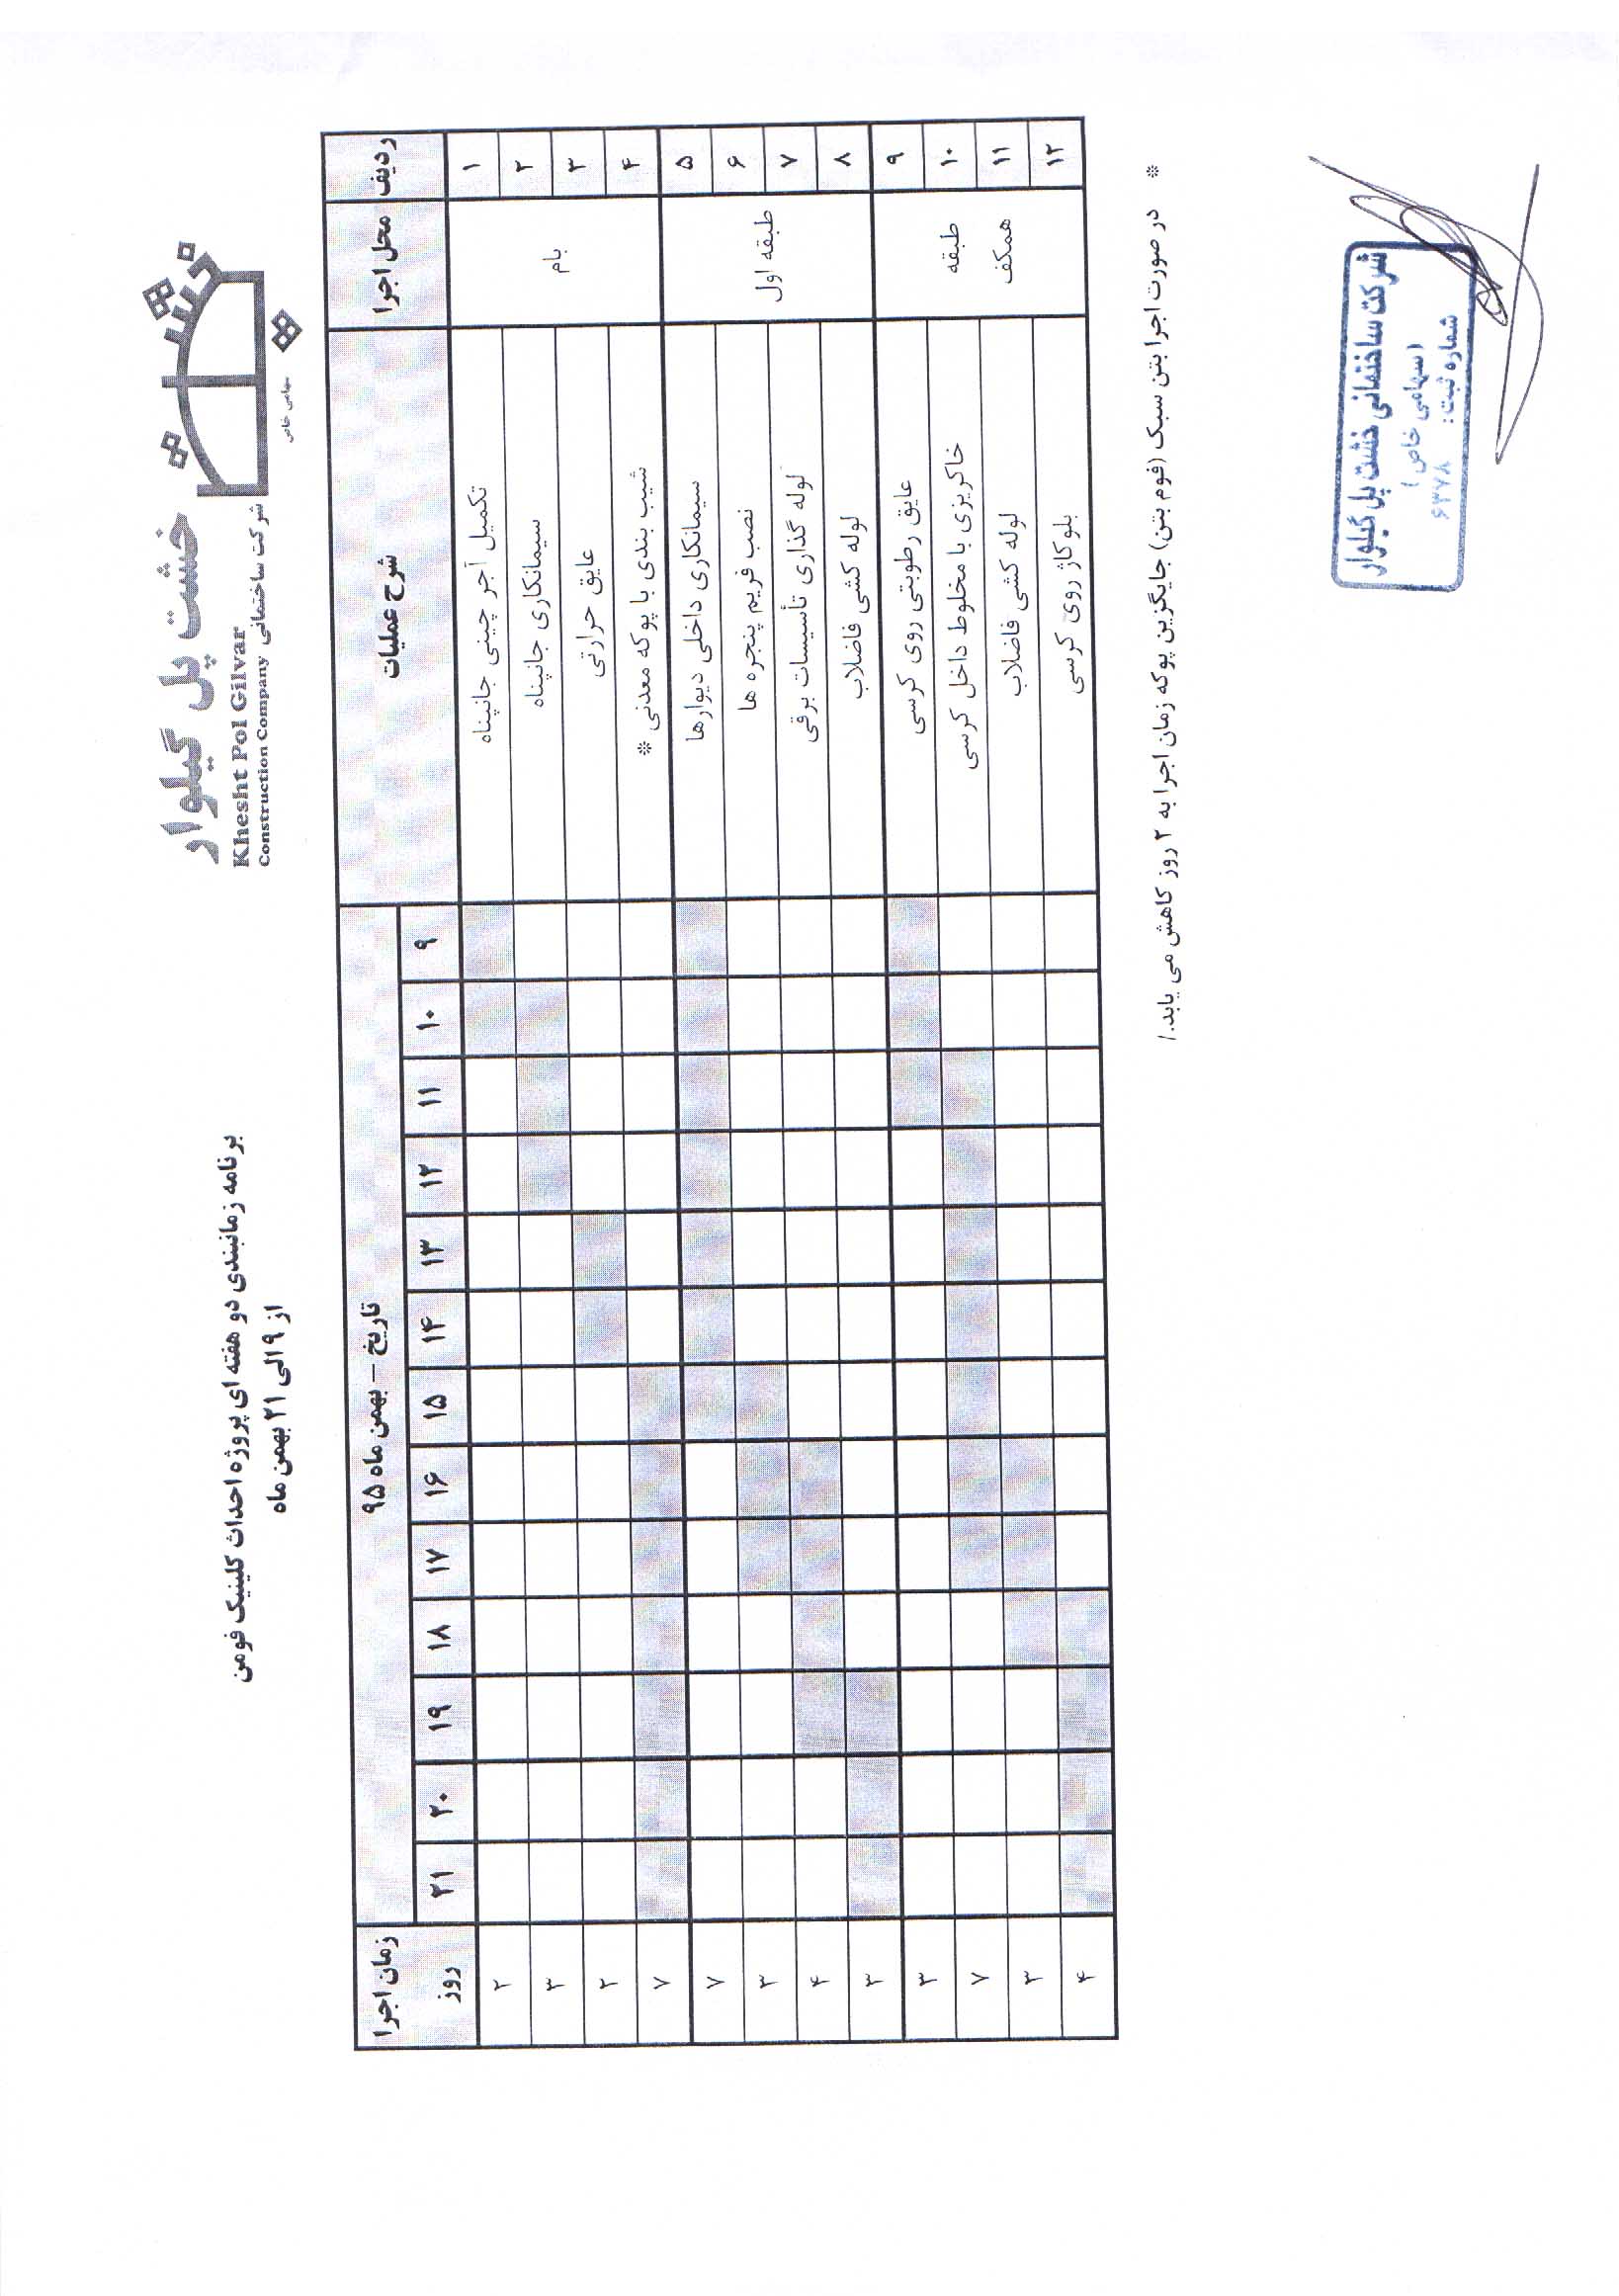 خشت پل گیلوار
Khesht Pol Gilvar
Construction Company شرکت ساختمانی
خشت
پ
سهامی خاص
برنامه زمانبندی دو هفته ای پروژه احداث کلینیک فومن
از ۹ الی ۲۱ بهمن ماه
ردیف محل اجرا شرح عملیات تاریخ – بهمن ماه ۹۵ زمان اجرا
۹ ۱۰ ۱۱ ۱۲ ۱۳ ۱۴ ۱۵ ۱۶ ۱۷ ۱۸ ۱۹ ۲۰ ۲۱ روز
۱ تکمیل آجر چینی جانپناه ۲
۲ بام سیمانکاری جانپناه ۳
۳ عایق حرارتی ۲
۴ شیب بندی با پوکه معدنی * ۷
۵ سیمانکاری داخلی دیوارها ۷
۶ طبقه اول نصب فریم پنجره ها ۳
۷ لوله گذاری تأسیسات برقی ۴
۸ لوله کشی فاضلاب ۳
۹ عایق رطوبتی روی کرسی ۳
۱۰ طبقه خاکریزی با مخلوط داخل کرسی ۷
۱۱ همکف لوله کشی فاضلاب ۳
۱۲ بلوکاژ روی کرسی ۴
* در صورت اجرا بتن سبک (فوم بتن) جایگزین پوکه زمان اجرا به ۲ روز کاهش می یابد./
شرکت ساختمانی خشت پل گیلوار
(سهامی خاص)
شماره ثبت: ۶۳۷۸